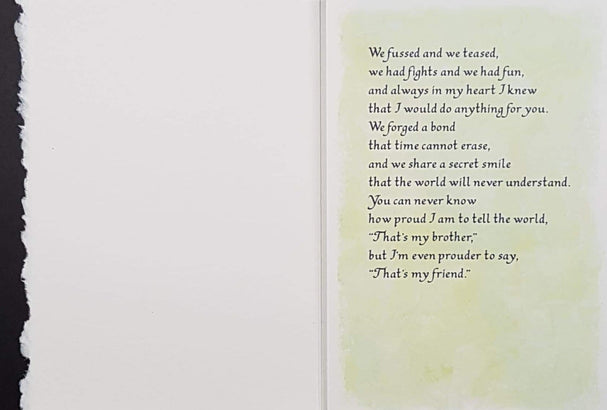 We fussed and we teased,
we had fights and we had fun,
and always in my heart I knew
that I would do anything for you.
We forged a bond
that time cannot erase,
and we share a secret smile
that the world will never understand.
You can never know
how proud I am to tell the world,
“That's my brother,”
but I'm even prouder to say,
“That's my friend.”